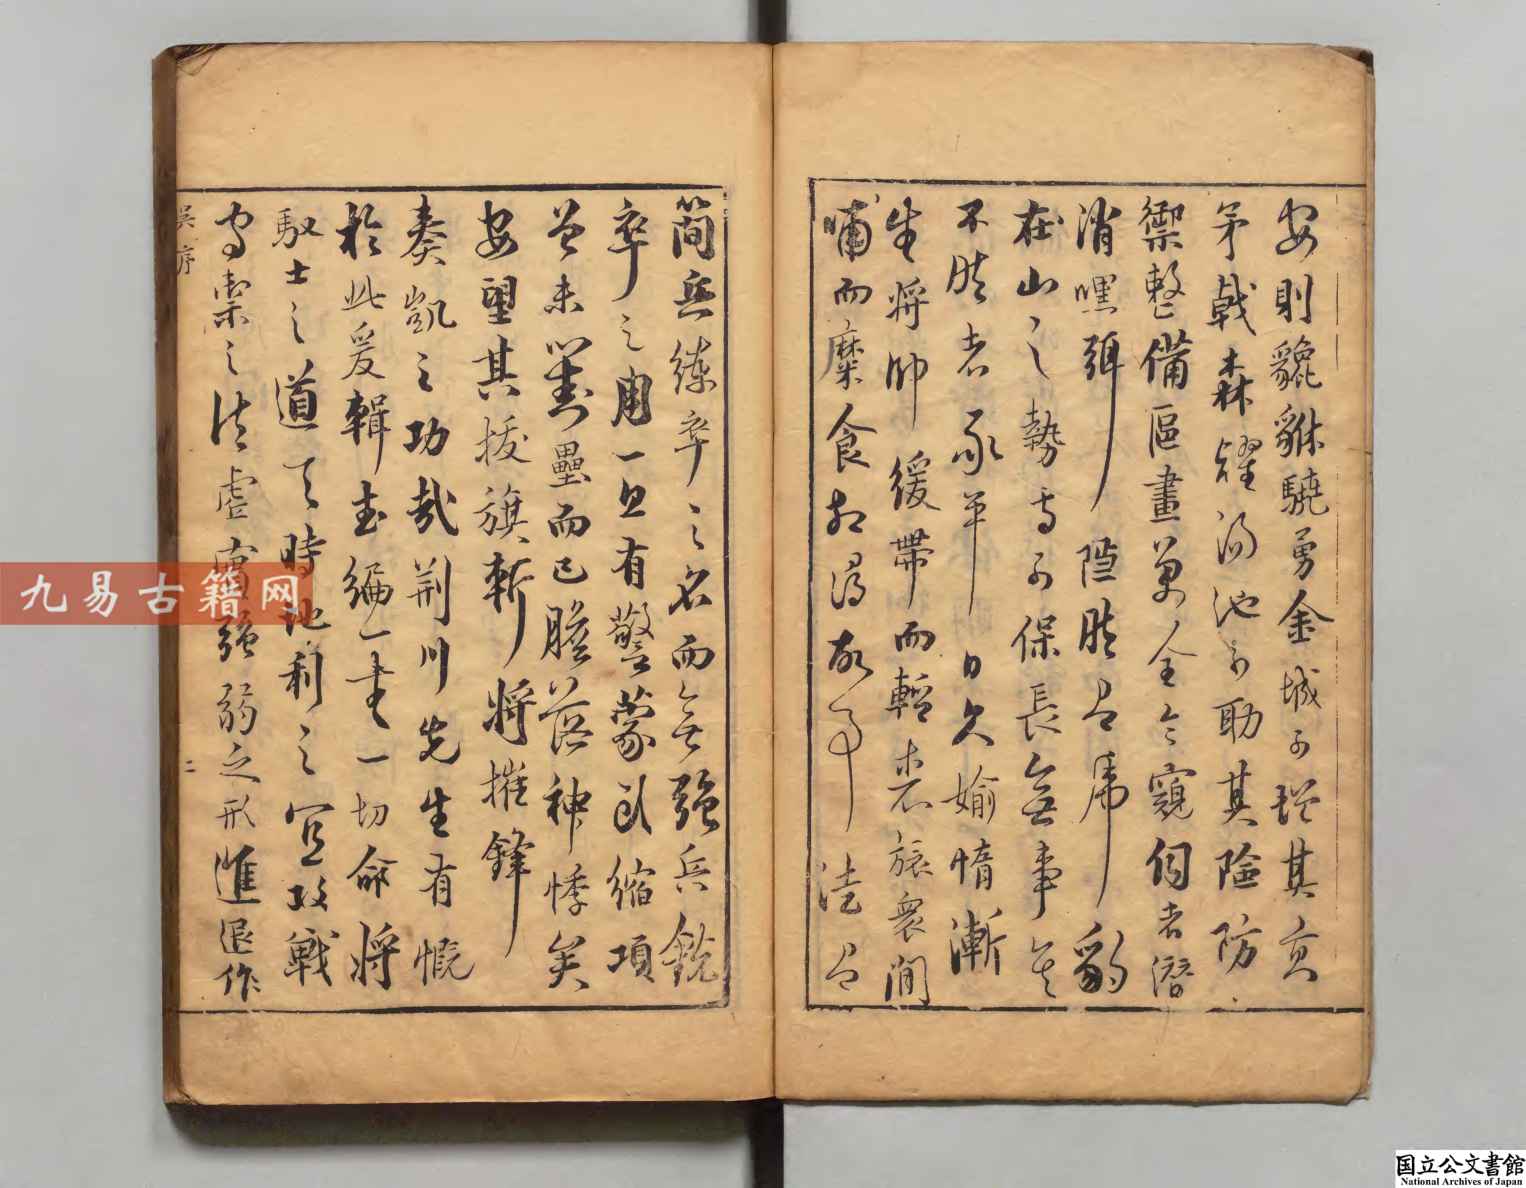 安則貔貅驍勇金城可增其
矛戟森耀湯池可助其險防
禦整備區畫萬全令窺伺者潛
消嘿弭隱然虎豹
在山之勢可保長無事矣
不然者承平日久媮惰漸
生將帥緩帶而輕裘旅衆閒
哺而糜食相習故事法
簡兵練卒之名而無強兵銳
卒之用一旦有警蒙臥縮項
曾未對壘而已膽落神悸矣
安望其拔旗斬將摧鋒
奏凱之功哉荊川先生有慨
於此爰輯武編一書一切命將
馭士之道天時地利之宜攻戰
守禦之法虛實強弱之形進退作
吳序
二
九易古籍网
国立公文書館
National Archives of Japan